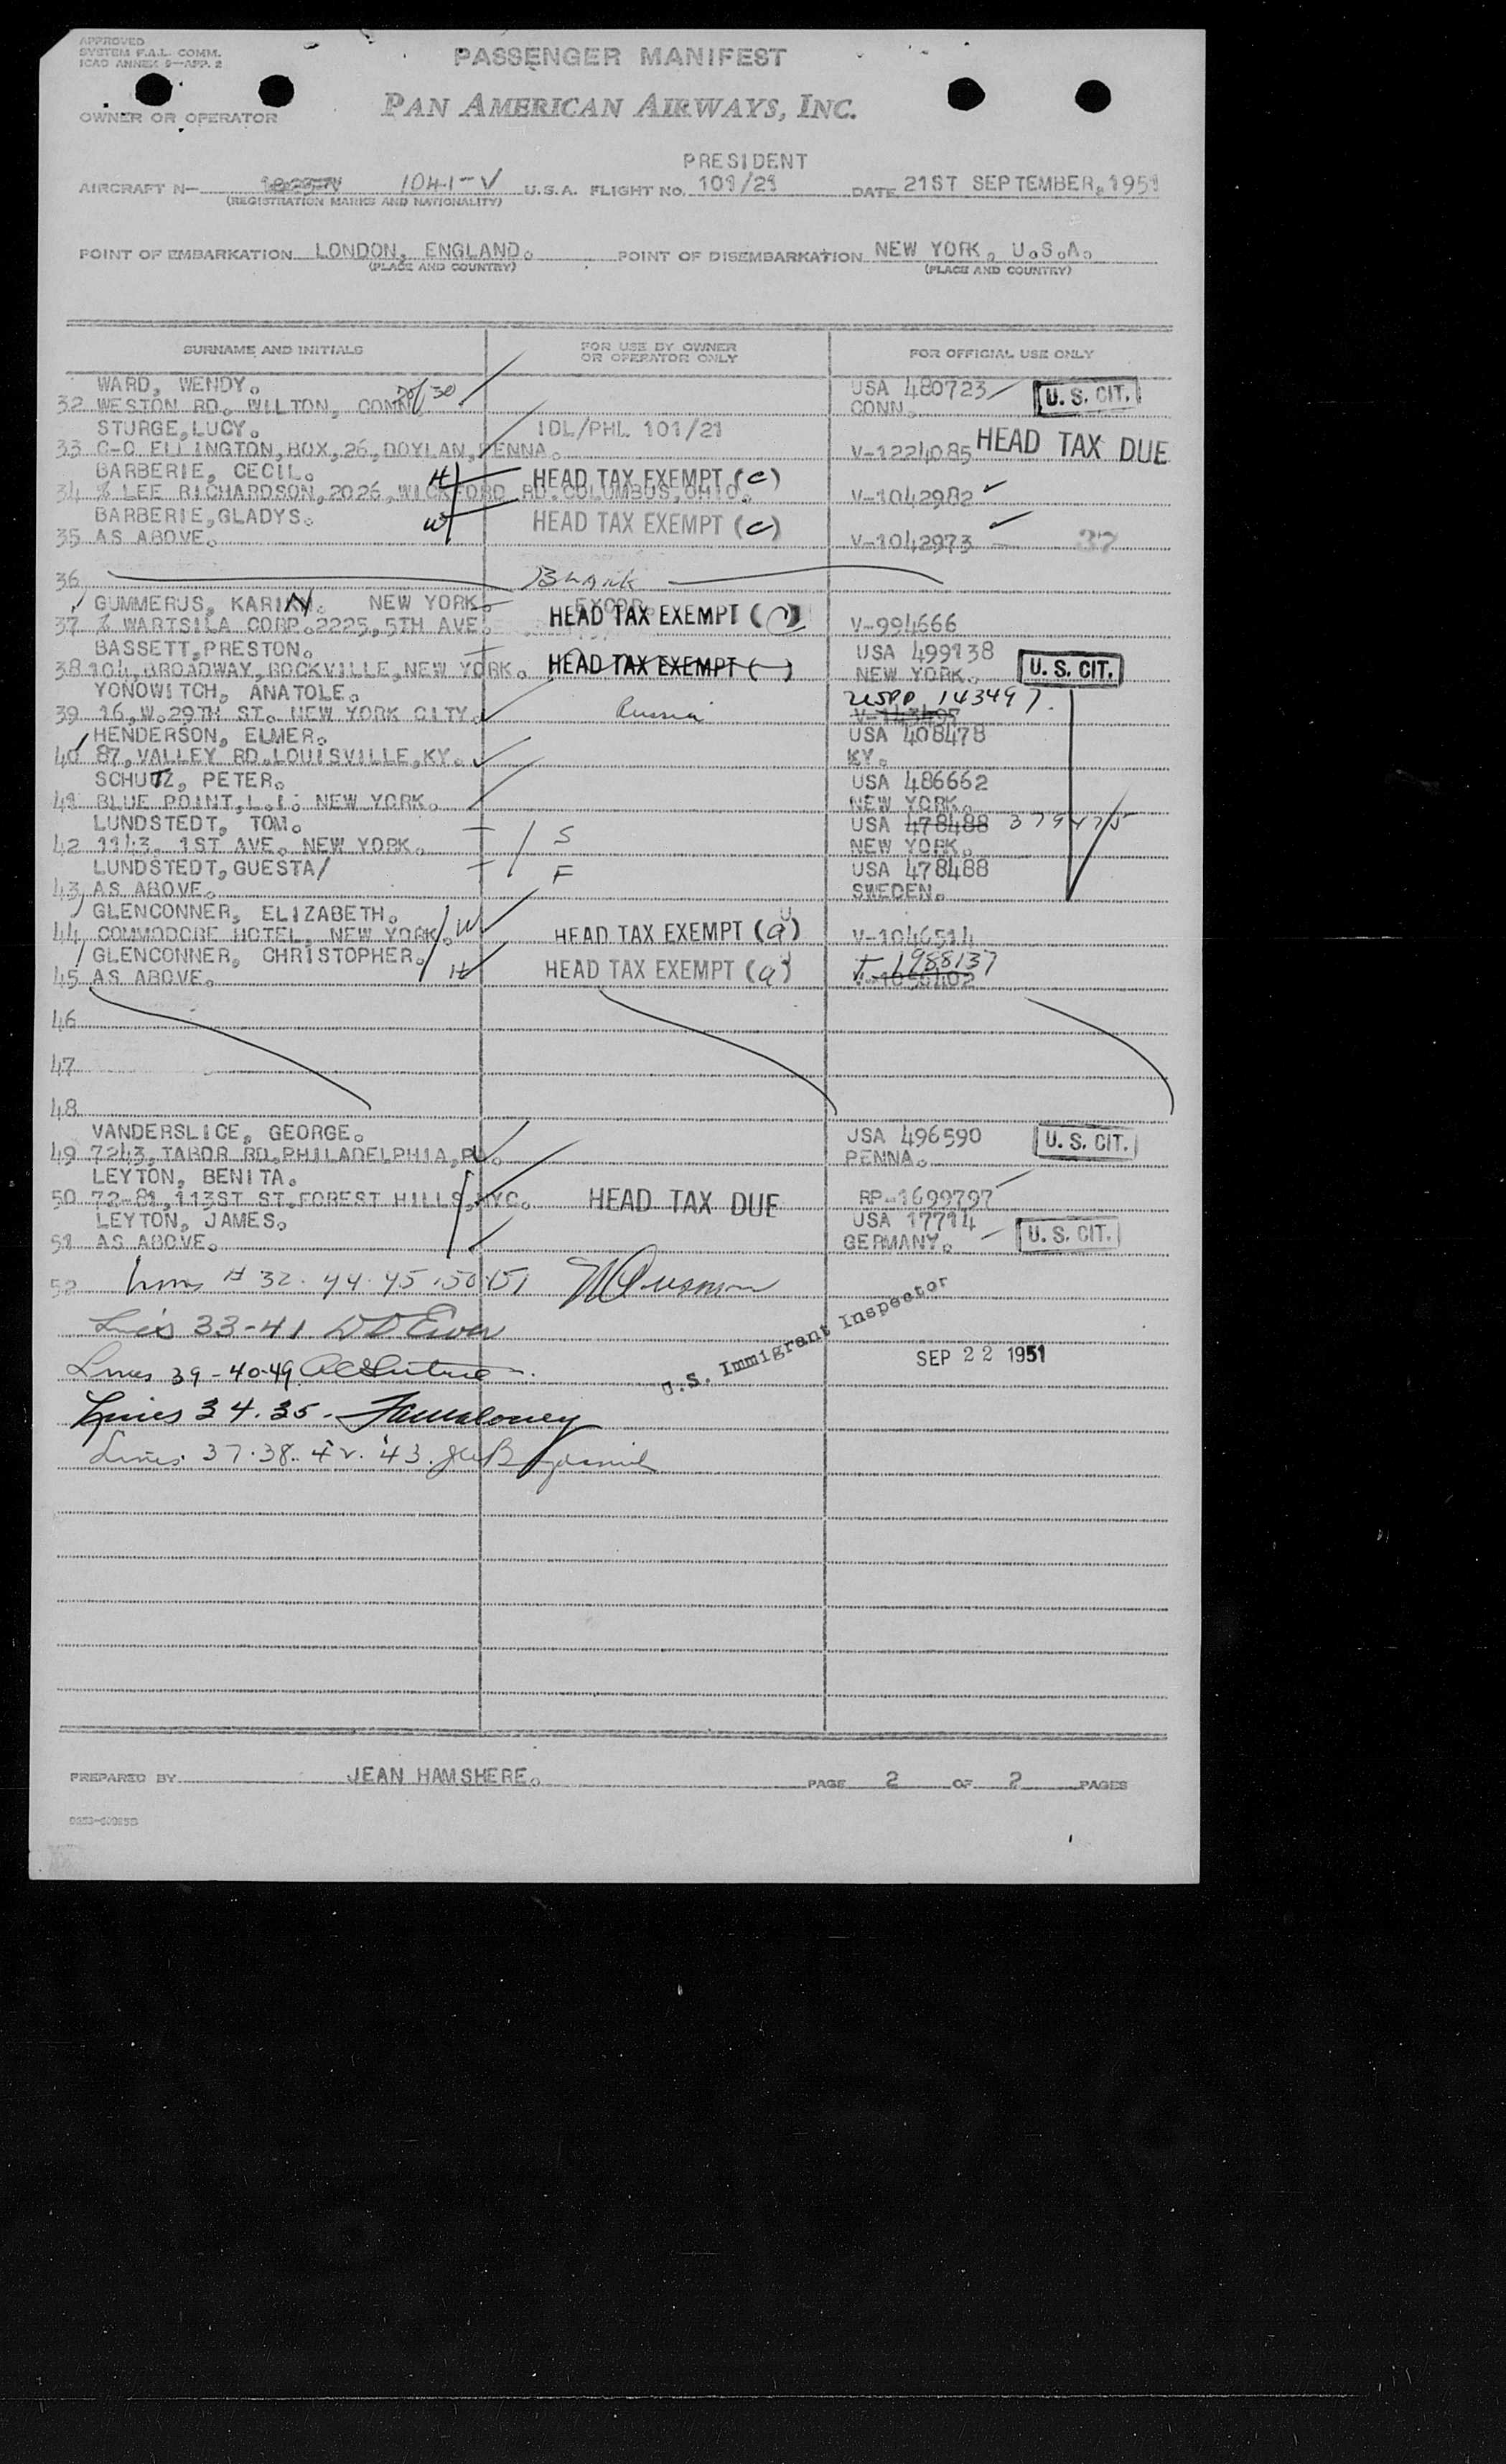 APPROVED
SYSTEM F.A.L. COMM.
ICAO ANNEX 9—APP. 2
PASSENGER MANIFEST
OWNER OR OPERATOR
PAN AMERICAN AIRWAYS, INC.
PRESIDENT
AIRCRAFT N— 1041-V U.S.A. FLIGHT NO. 101/21 DATE 21ST SEPTEMBER, 1951
(REGISTRATION MARKS AND NATIONALITY)
POINT OF EMBARKATION LONDON, ENGLAND. POINT OF DISEMBARKATION NEW YORK, U.S.A.
(PLACE AND COUNTRY) (PLACE AND COUNTRY)
SURNAME AND INITIALS FOR USE BY OWNER OR OPERATOR ONLY FOR OFFICIAL USE ONLY
WARD, WENDY. USA 480723 U. S. CIT.
32 WESTON RD. WILTON, CONN. CONN.
STURGE, LUCY. IDL/PHL 101/21
33 C-O ELLINGTON, BOX, 26, DOYLAN, PENNA. V-1224085 HEAD TAX DUE
BARBERIE, CECIL. H HEAD TAX EXEMPT (c)
34 % LEE RICHARDSON, 2026, WICKFORD RD. COLUMBUS, OHIO. V-1042982
BARBERIE, GLADYS. W HEAD TAX EXEMPT (c)
35 AS ABOVE. V-1042973 37
36 Blank
GUMMERUS, KARIN. NEW YORK.
37 % WARTSILA CORP. 2225, 5TH AVE. HEAD TAX EXEMPT V-994666
BASSETT, PRESTON. USA 499138
38 104, BROADWAY, ROCKVILLE, NEW YORK. HEAD TAX EXEMPT ( ) NEW YORK. U. S. CIT.
YONOWITCH, ANATOLE. 143497
39 16, W. 29TH ST. NEW YORK CITY. Russia V-143497
HENDERSON, ELMER. USA 408478
40 87, VALLEY RD. LOUISVILLE, KY. KY.
SCHUTZ, PETER. USA 486662
41 BLUE POINT, L.I. NEW YORK. NEW YORK.
LUNDSTEDT, TOM. USA 478488 379475
42 1143, 1ST AVE. NEW YORK. S NEW YORK.
LUNDSTEDT, GUESTA/ F USA 478488
43 AS ABOVE. SWEDEN.
GLENCONNER, ELIZABETH.
44 COMMODORE HOTEL, NEW YORK. W HEAD TAX EXEMPT (a) V-1046514
GLENCONNER, CHRISTOPHER. 1988137
45 AS ABOVE. H HEAD TAX EXEMPT (a)
46
47
48
VANDERSLICE, GEORGE. USA 496590 U. S. CIT.
49 7243, TABOR RD. PHILADELPHIA, PA. PENNA.
LEYTON, BENITA.
50 72-81, 113ST ST. FOREST HILLS, NYC. HEAD TAX DUE RP-1699797
LEYTON, JAMES. USA 17714
51 AS ABOVE. GERMANY. U. S. CIT.
52 Lines # 32. 44. 45. 50. 51
Lines 33-41
Lines 39-40-49
U.S. Immigrant Inspector
SEP 22 1951
Lines 34.35.
Lines 37.38. 42. 43.
PREPARED BY JEAN HAMSHERE. PAGE 2 OF 2 PAGES